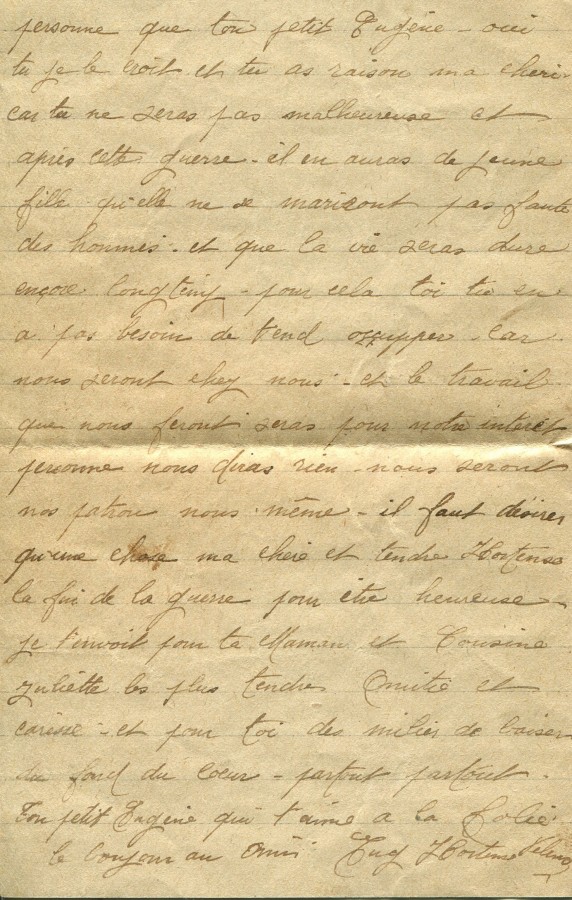 personne que ton petit Eugène - oui
tu je le croit et tu as raison ma cheri
car tu ne seras pas malheureuse et
après cette guerre - il en auras de jeune
fille qu'elle ne se marieront pas faute
des hommes - et que la vie seras dure
encore longtemp - pour cela toi tu en
a pas besoin de t'end occupper - car
nous seront chez nous - et le travail
que nous feront seras pour notre interêt
personne nous diras rien - nous seront
nos patron nous même - il faut désirer
qu'une chose ma chère et tendre Hortense
la fin de la guerre pour être heureuse
je t'envoit pour ta Maman et Cousine
Juliette les plus tendre Amitié et
caresse - et pour toi des milier de baiser
du fond du cœur - partout partout -
Ton petit Eugène qui t'aime a la Folie
le bonjour au Amis Eug Hortense